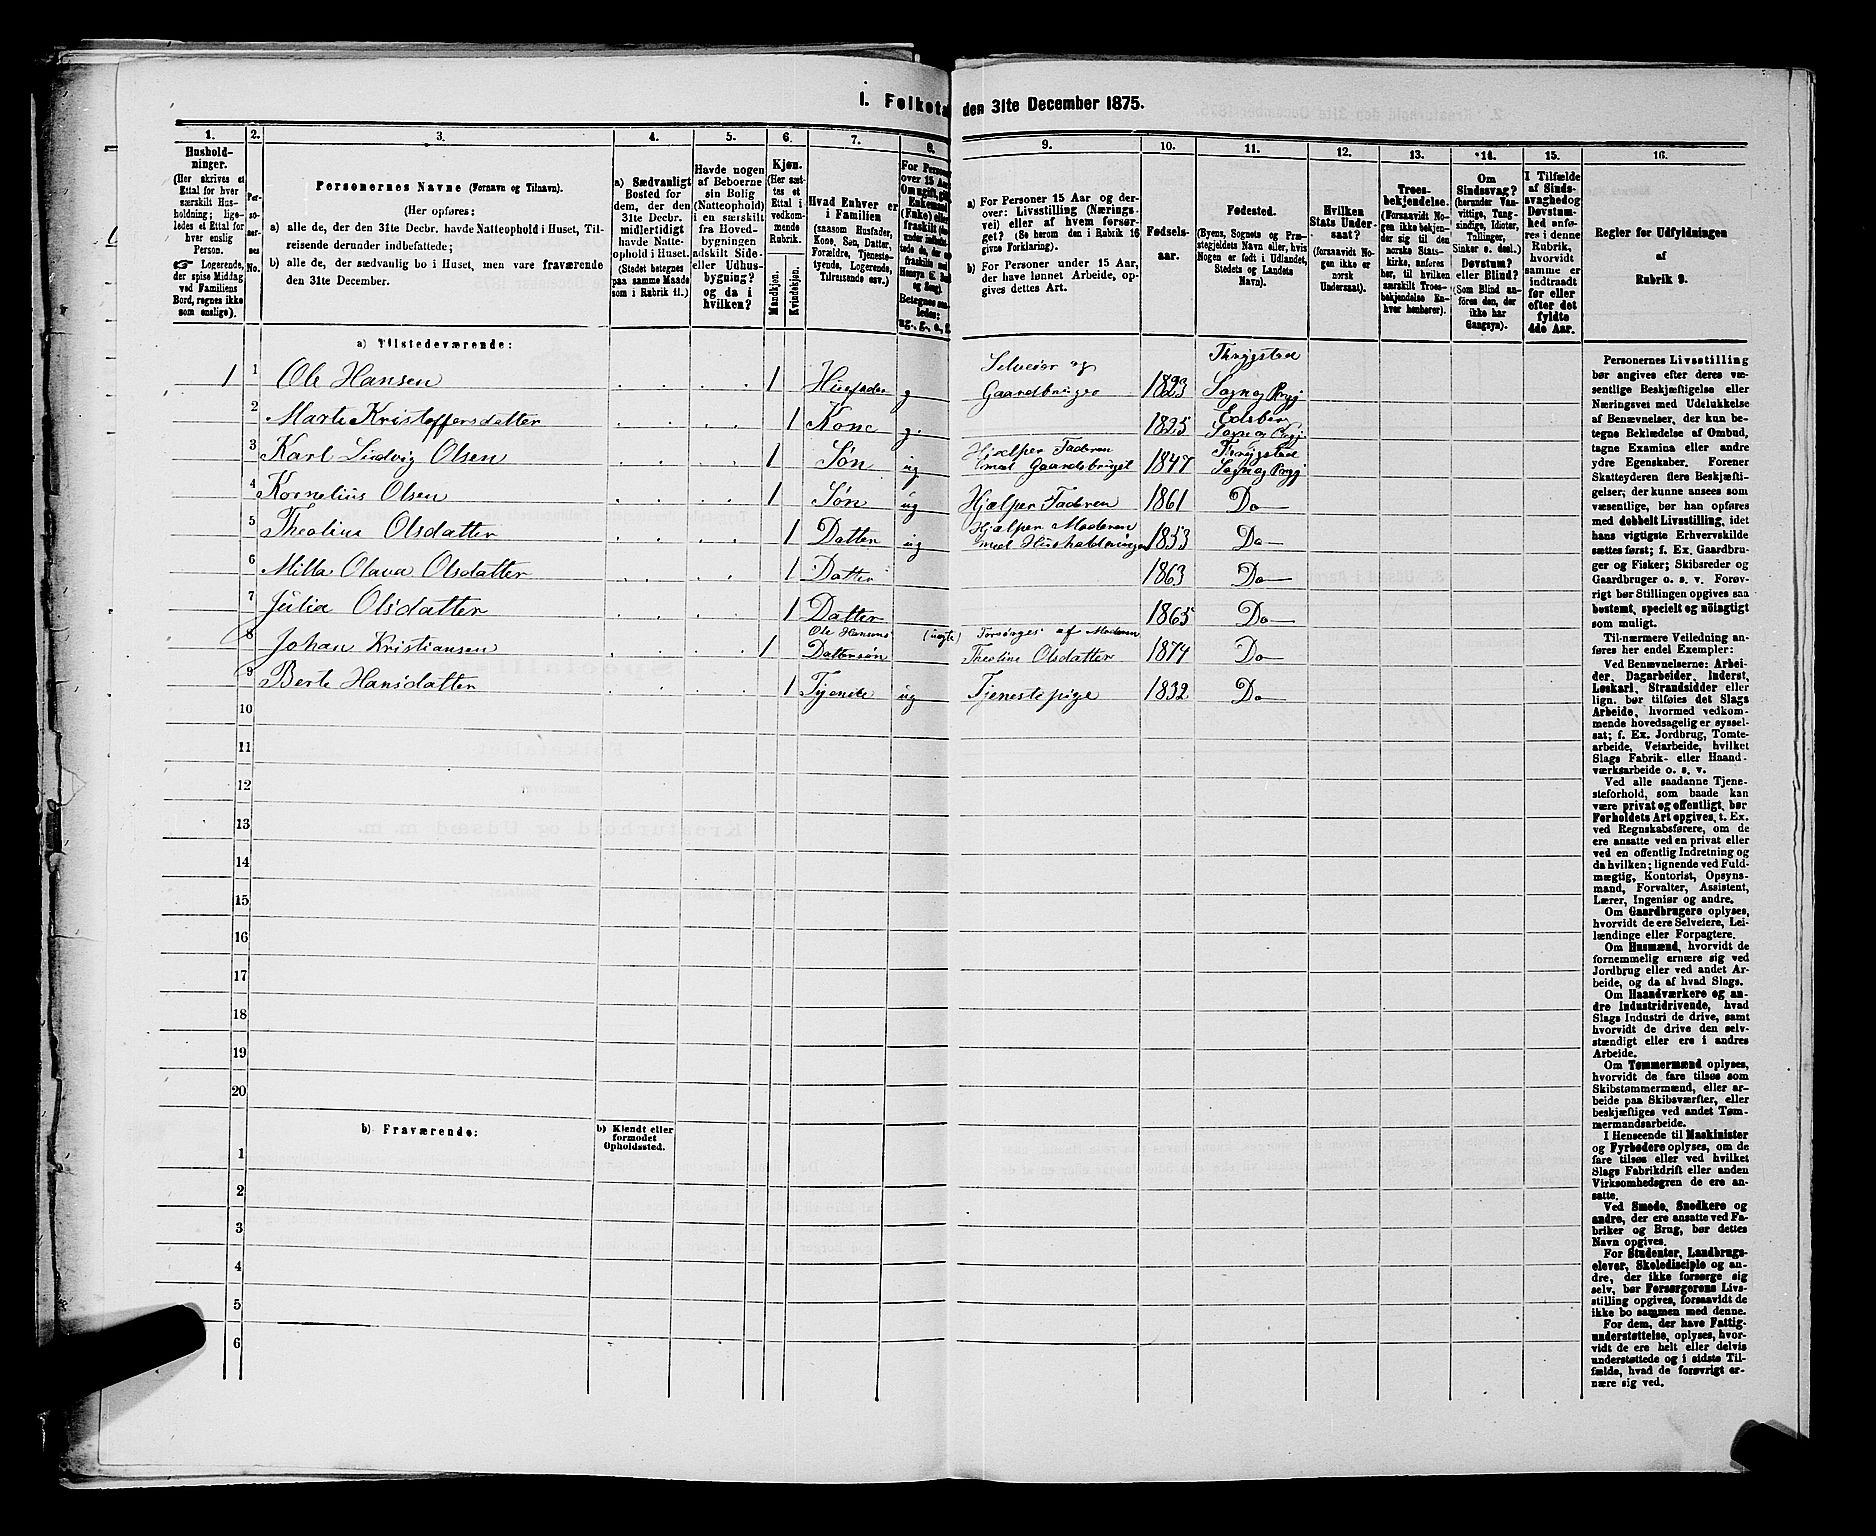 1. Folketal den 31te December 1875.
1. 2. 3. 4. 5. 6. 7. 8. 9. 10. 11. 12. 13. 14. 15. 16.
Husholdninger. (Her skrives et Ettal for hver særskilt Husholdning; ligeledes et Ettal for hver enslig Person. ☞ Logerende, der spise Middag ved Familiens Bord, regnes ikke som enslige).
Personernes No.
Personernes Navne (Fornavn og Tilnavn).
(Her opføres:
a) alle de, der den 31te Decbr. havde Natteophold i Huset, Tilreisende derunder indbefattede;
b) alle de, der sædvanlig bo i Huset, men vare fraværende den 31te December.
a) Sædvanligt Bosted for dem, der den 31te Decbr. midlertidigt havde Natteophold i Huset. (Stedet betegnes paa samme Maade som i Rubrik 11.)
Havde nogen af Beboerne sin Bolig (Natteophold) i en særskilt fra Hovedbygningen adskilt Side- eller Udhusbygning? og da i hvilken?
Kjøn. (Her sættes et Ettal i vedkommende Rubrik.
Mandkjøn. Kvindekjøn.
Hvad Enhver er i Familien (saasom Husfader, Kone, Søn, Datter, Forældre, Tjenestetyende, Logerende, Tilreisende osv.)
For Personer over 15 Aar:
a) For Personer 15 Aar og derover: Livsstilling (Næringsvei) eller af hvem forsørget? (Se herom den i Rubrik 16 givne Forklaring).
b) For Personer under 15 Aar, der have lønnet Arbeide, opgives dettes Art.
Fødselsaar.
Fødested. (Byens, Sognets og Præstegjeldets Navn eller, hvis Nogen er født i Udlandet, Stedets og Landets Navn).
Hvilken Stats Undersaat? (forsaavidt Nogen ikke er norsk Undersaat).
Troesbekjendelse. (Forsaavidt Nogen ikke bekjender sig til den norske Statskirke, anføres her, til hvilken særskilt Troesbekjendelse Enhver henhører).
Om Sindssvag? (herunder Vanvittige, Tungsindige, Idioter, Tullinger, Sinker o. desl.) Døvstum? eller Blind? (Som Blind anføres den, der ikke har Gangsyn).
I Tilfælde af Sindssvaghed og Døvstumhed anføres i denne Rubrik, hvorvidt samme er indtraadt før eller efter det fyldte 4de Aar.
Regler for Udfyldningen af Rubrik 9.
a) Tilstedeværende:
1 1 Ole Hansen 1 Husfader g Selveier og Gaardbruger 1823 Thrygstad Sogn og Prgj
2 Marte Kristoffersdatter 1 Kone g. 1825 Eidsberg Sogn og Prgj
3 Karl Ludvig Olsen 1 Søn ug Hjælper Faderen med Gaardsbruget 1847 Thrygstad Sogn og Prgj
4 Kornelius Olsen 1 Søn ug Hjælper Faderen 1861 Do
5 Theoline Olsdatter 1 Datter ug Hjælper Moderen med Husholdningen 1853 Do
6 Milla Olava Olsdatter 1 Datter 1863 Do
7 Julia Olsdatter 1 Datter 1865 Do
8 Johan Kristiansen 1 Ole Hansens Dattersøn (uægte) Forsørges af Moderen Theoline Olsdatter 1874 Do
9 Berte Hansdatter 1 Tjenede ug Tjenestepige 1832 Do
10
11
12
13
14
15
16
17
18
19
20
b) Fraværende:
b) Kjendt eller formodet Opholdssted.
1
2
3
4
5
6
Personernes Livsstilling
bør angives efter deres væ-
sentlige Beskjæftigelse eller
Næringsvei med Udelukkelse
af Benævnelser, der kun be-
tegne Beklædelse af Ombud,
tagne Examina eller andre
ydre Egenskaber. Forener
Skatteyderen flere Beskjæfti-
gelser, der kunne ansees som
væsentlige, bør han opføres
med dobbelt Livsstilling, idet
hans vigtigste Erhvervskilde
sættes først; f. Ex. Gaardbru-
ger og Fisker; Skibsreder og
Gaardbruger o. s. v. Forøv-
rigt bør Stillingen opgives saa
bestemt, specielt og nöiagtigt
som muligt.
Til nærmere Veiledning an-
føres her endel Exempler:
Ved Benævnelserne: Arbei-
der, Dagarbeider, Inderst,
Løskarl, Strandsidder eller
lign. bør tilføies det Slags
Arbeide, hvormed vedkom-
mende hovedsagelig er syssel-
sat; f. Ex. Jordbrug, Tomte-
arbeide, Veiarbeide, hvilket
Slags Fabrik- eller Haand-
værksarbeide o. s. v.
Ved alle saadanne Tjene-
steforhold, som baade kan
være privat og offentligt, bør
Forholdets Art opgives, t. Ex.
ved Regnskabsførere, om de
ere ansatte ved en privat eller
ved en offentlig Indretning og
da hvilken; lignende ved Fuld-
mægtig, Kontorist, Opsyns-
mand, Forvalter, Assistent,
Lærer, Ingeniør og andre.
Om Gaardbrugere oplyses,
hvorvidt de ere Selveiere, Lei-
lændinge eller Forpagtere.
Om Husmænd, hvorvidt de
fornemmelig ernære sig ved
Jordbrug eller ved andet Ar-
beide, og da af hvad Slags.
Om Haandværkere og an-
dre Industridrivende, hvad
Slags Industri de drive, samt
hvorvidt de drive den selv-
stændigt eller ere i andres
Arbeide.
Om Tømmermænd oplyses,
hvorvidt de fare tilsøs som
Skibstømmermænd, eller ar-
beide paa Skibsværfter, eller
beskjæftiges ved andet Tøm-
mermandsarbeide.
I Henseende til Maskinister
og Fyrbødere oplyses, om de
fare tilsøs eller ved hvilket
Slags Fabrikdrift eller anden
Virksomhedsgren de ere an-
satte.
Ved Smede, Snedkere og
andre, der ere ansatte ved Fa-
briker og Brug, bør dettes
Navn opgives.
For Studenter, Landbrugs-
elever, Skoledisciple og an-
dre, der ikke forsørge sig
selv, bør Forsørgerens Livs-
stilling opgives, forsaavidt de
ikke bo sammen med denne.
For dem, der have Fattig-
understøttelse, oplyses, hvor-
vidt de ere helt eller delvis
understøttede og i sidste Til-
fælde, hvad de forøvrigt er-
nære sig ved.